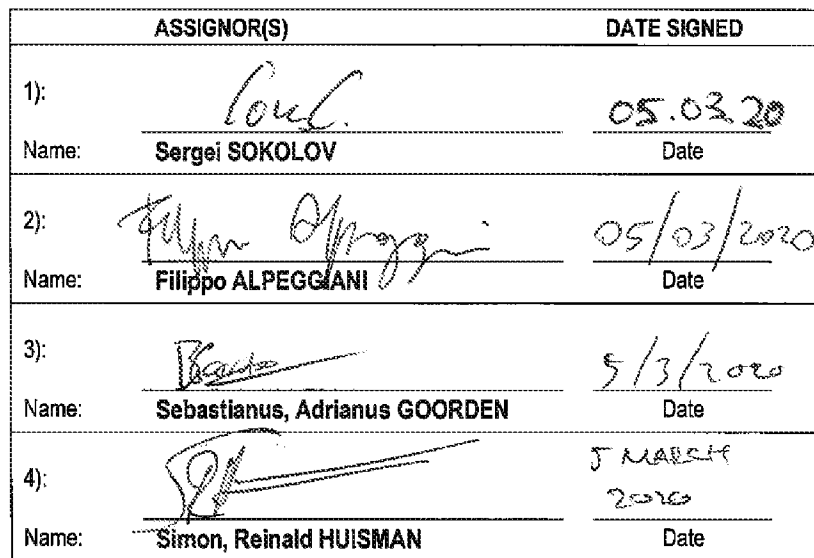 ASSIGNOR(S) DATE SIGNED
1): 05.03.20
Name: Sergei SOKOLOV Date
2): Filippo Alpeggiani 05/03/2020
Name: Filippo ALPEGGIANI Date
3): 5/3/2020
Name: Sebastianus, Adrianus GOORDEN Date
4): 5 MARCH
2020
Name: Simon, Reinald HUISMAN Date